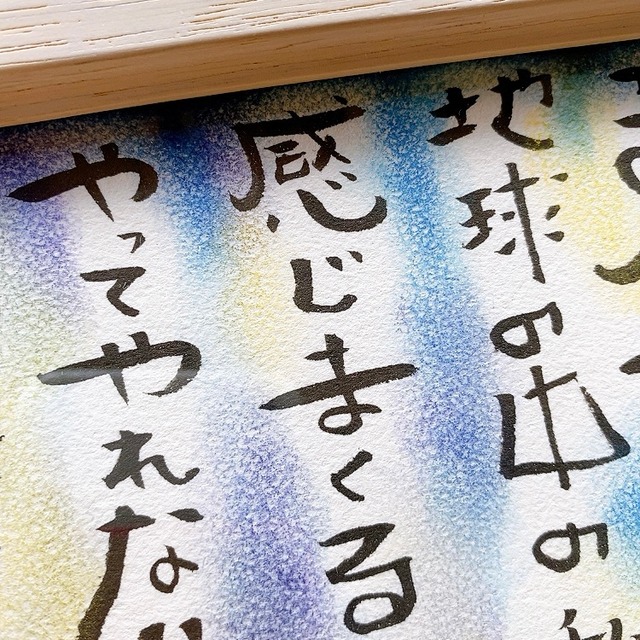 地球の中の
感じまくる
やってやれな